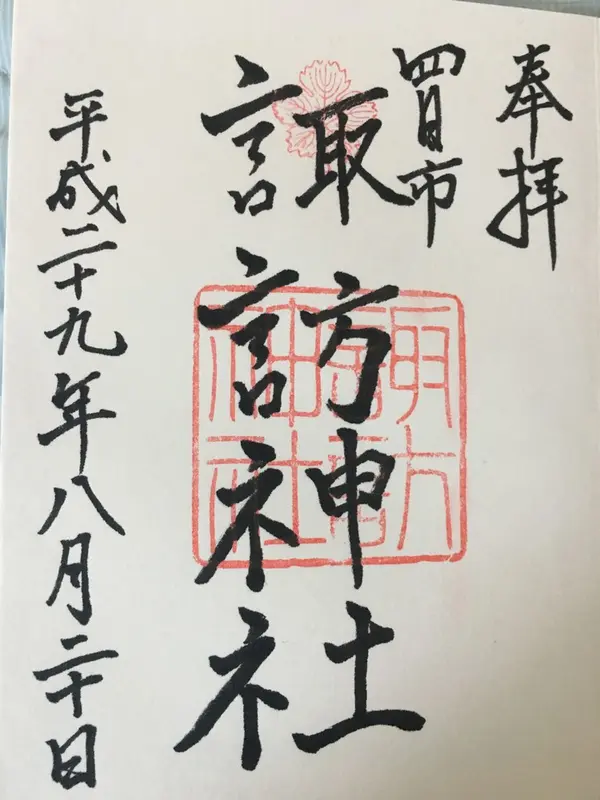 奉拝
四日市
諏訪神社
諏訪神社
平成二十九年八月二十日